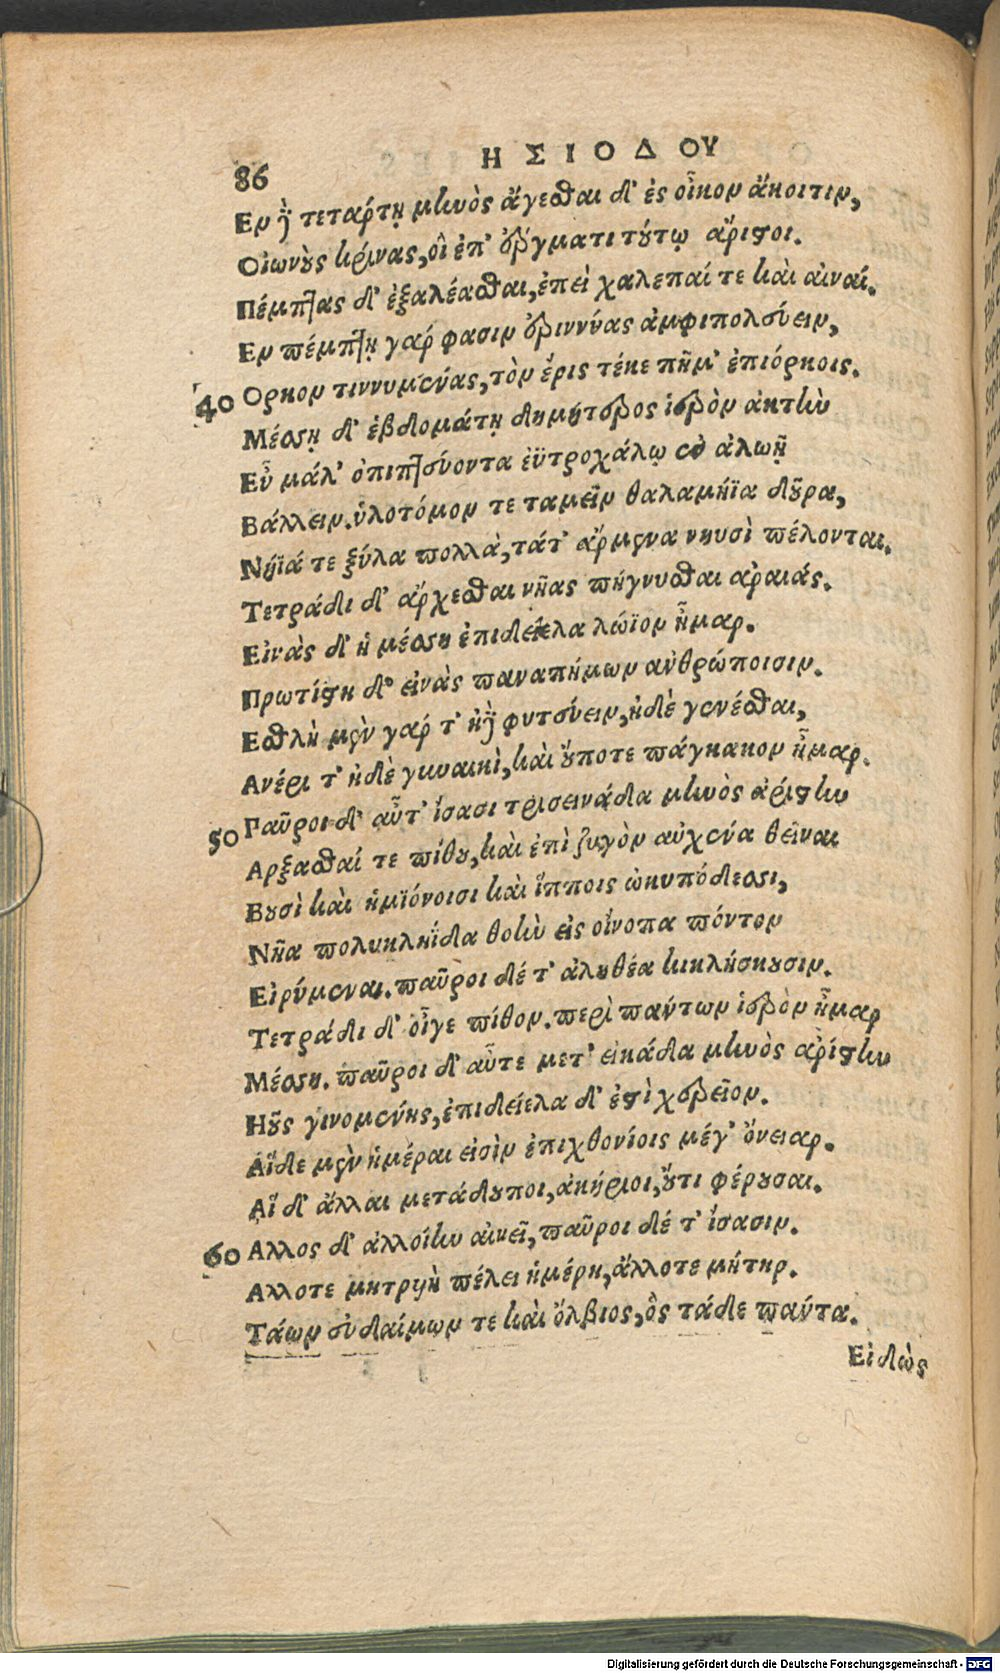 86 ΗΣΙΟΔΟΥ
Εν δὲ τετάρτῃ μηνὸς ἄγεσθαι δ' ἐς οἶκον ἄκοιτιν,
Οἰωνοὺς κρίνας, οἳ ἐπ' ἔργματι τούτῳ ἄριστοι.
Πέμπτας δ' ἐξαλέασθαι, ἐπεὶ χαλεπαί τε καὶ αἰναί.
Εν πέμπτῃ γάρ φασιν ἐριννύας ἀμφιπολεύειν,
40 Ορκον τιννυμένας, τὸν ἔρις τέκε πῆμ' ἐπιόρκοις.
Μέσσῃ δ' ἑβδομάτῃ δημήτερος ἱερὸν ἀκτὴν
Εὖ μάλ' ὀπιπτεύοντα ἐϋτροχάλῳ ἐν ἀλωῇ
Βάλλειν. ὑλοτόμον τε ταμεῖν θαλαμήϊα δοῦρα,
Νήϊά τε ξύλα πολλὰ, τάτ' ἄρμενα νηυσὶ πέλονται.
Τετράδι δ' ἄρχεσθαι νῆας πήγνυσθαι ἀραιάς.
Εἰνὰς δ' ἡ μέσση ἐπιδείελα λώϊον ἦμαρ.
Πρωτίστη δ' εἰνὰς παναπήμων ἀνθρώποισιν.
Εσθλὴ μὲν γάρ τ' ἠδὲ φυτεύειν, ἠδὲ γενέσθαι,
Ανέρι τ' ἠδὲ γυναικὶ, καὶ οὔποτε πάγκακον ἦμαρ.
50 Γαῦροι δ' αὖτ' ἴσασι τρισεινάδα μηνὸς ἀρίστην
Αρξασθαί τε πίθου, καὶ ἐπὶ ζυγὸν αὐχένα θεῖναι
Βουσὶ καὶ ἡμϊόνοισι καὶ ἵπποις ὠκυπόδεσσι,
Νῆα πολυκληΐδα θοὴν εἰς οἴνοπα πόντον
Εἰρύμεναι. παῦροι δέ τ' ἀληθέα κικλήσκουσιν.
Τετράδι δ' οἶγε πίθον. περὶ πάντων ἱερὸν ἦμαρ
Μέσση. παῦροι δ' αὖτε μετ' εἰκάδα μηνὸς ἀρίστην
Ηοῦς γινομένης, ἐπιδείελα δ' ἐστὶ χερεῖον.
Αἵδε μὲν ἡμέραι εἰσὶν ἐπιχθονίοις μέγ' ὄνειαρ.
Αἵ δ' ἄλλαι μετάδουποι, ἀκήριοι, οὔτι φέρουσαι.
60 Αλλος δ' ἀλλοίην αἰνεῖ, παῦροι δέ τ' ἴσασιν.
Αλλοτε μητρυὴ πέλει ἡμέρη, ἄλλοτε μήτηρ.
Τάων εὐδαίμων τε καὶ ὄλβιος, ὃς τάδε πάντα.
Εἰδὼς
Digitalisierung gefördert durch die Deutsche Forschungsgemeinschaft - DFG